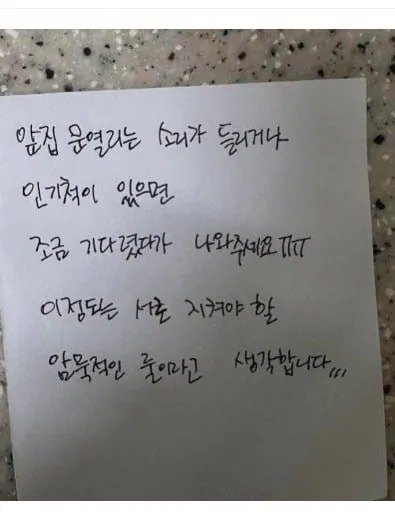 앞집 문열리는 소리가 들리거나
인기척이 있으면
조금 기다렸다가 나와주세요ㅠㅠ
이정도는 서로 지켜야 할
암묵적인 룰이라고 생각합니다,,,